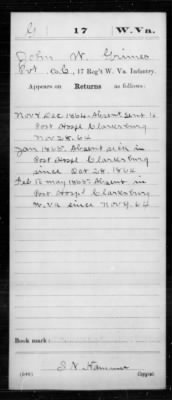 G | 17 | W. Va.
John W. Grimes
Pvt., Co. C, 17 Reg't W. Va. Infantry.
Appears on
Returns as follows:
Nov & Dec 1864. Absent sent to
Post Hospl Clarksburg
Nov 28.64
Jan 1865. Absent sick in
Post Hospl Clarksburg
since Oct 28. 1864
Feb to May 1865. Absent in
Post Hospl Clarksburg
W. Va since Nov 9.64
Book mark:
(546)
Copyist.